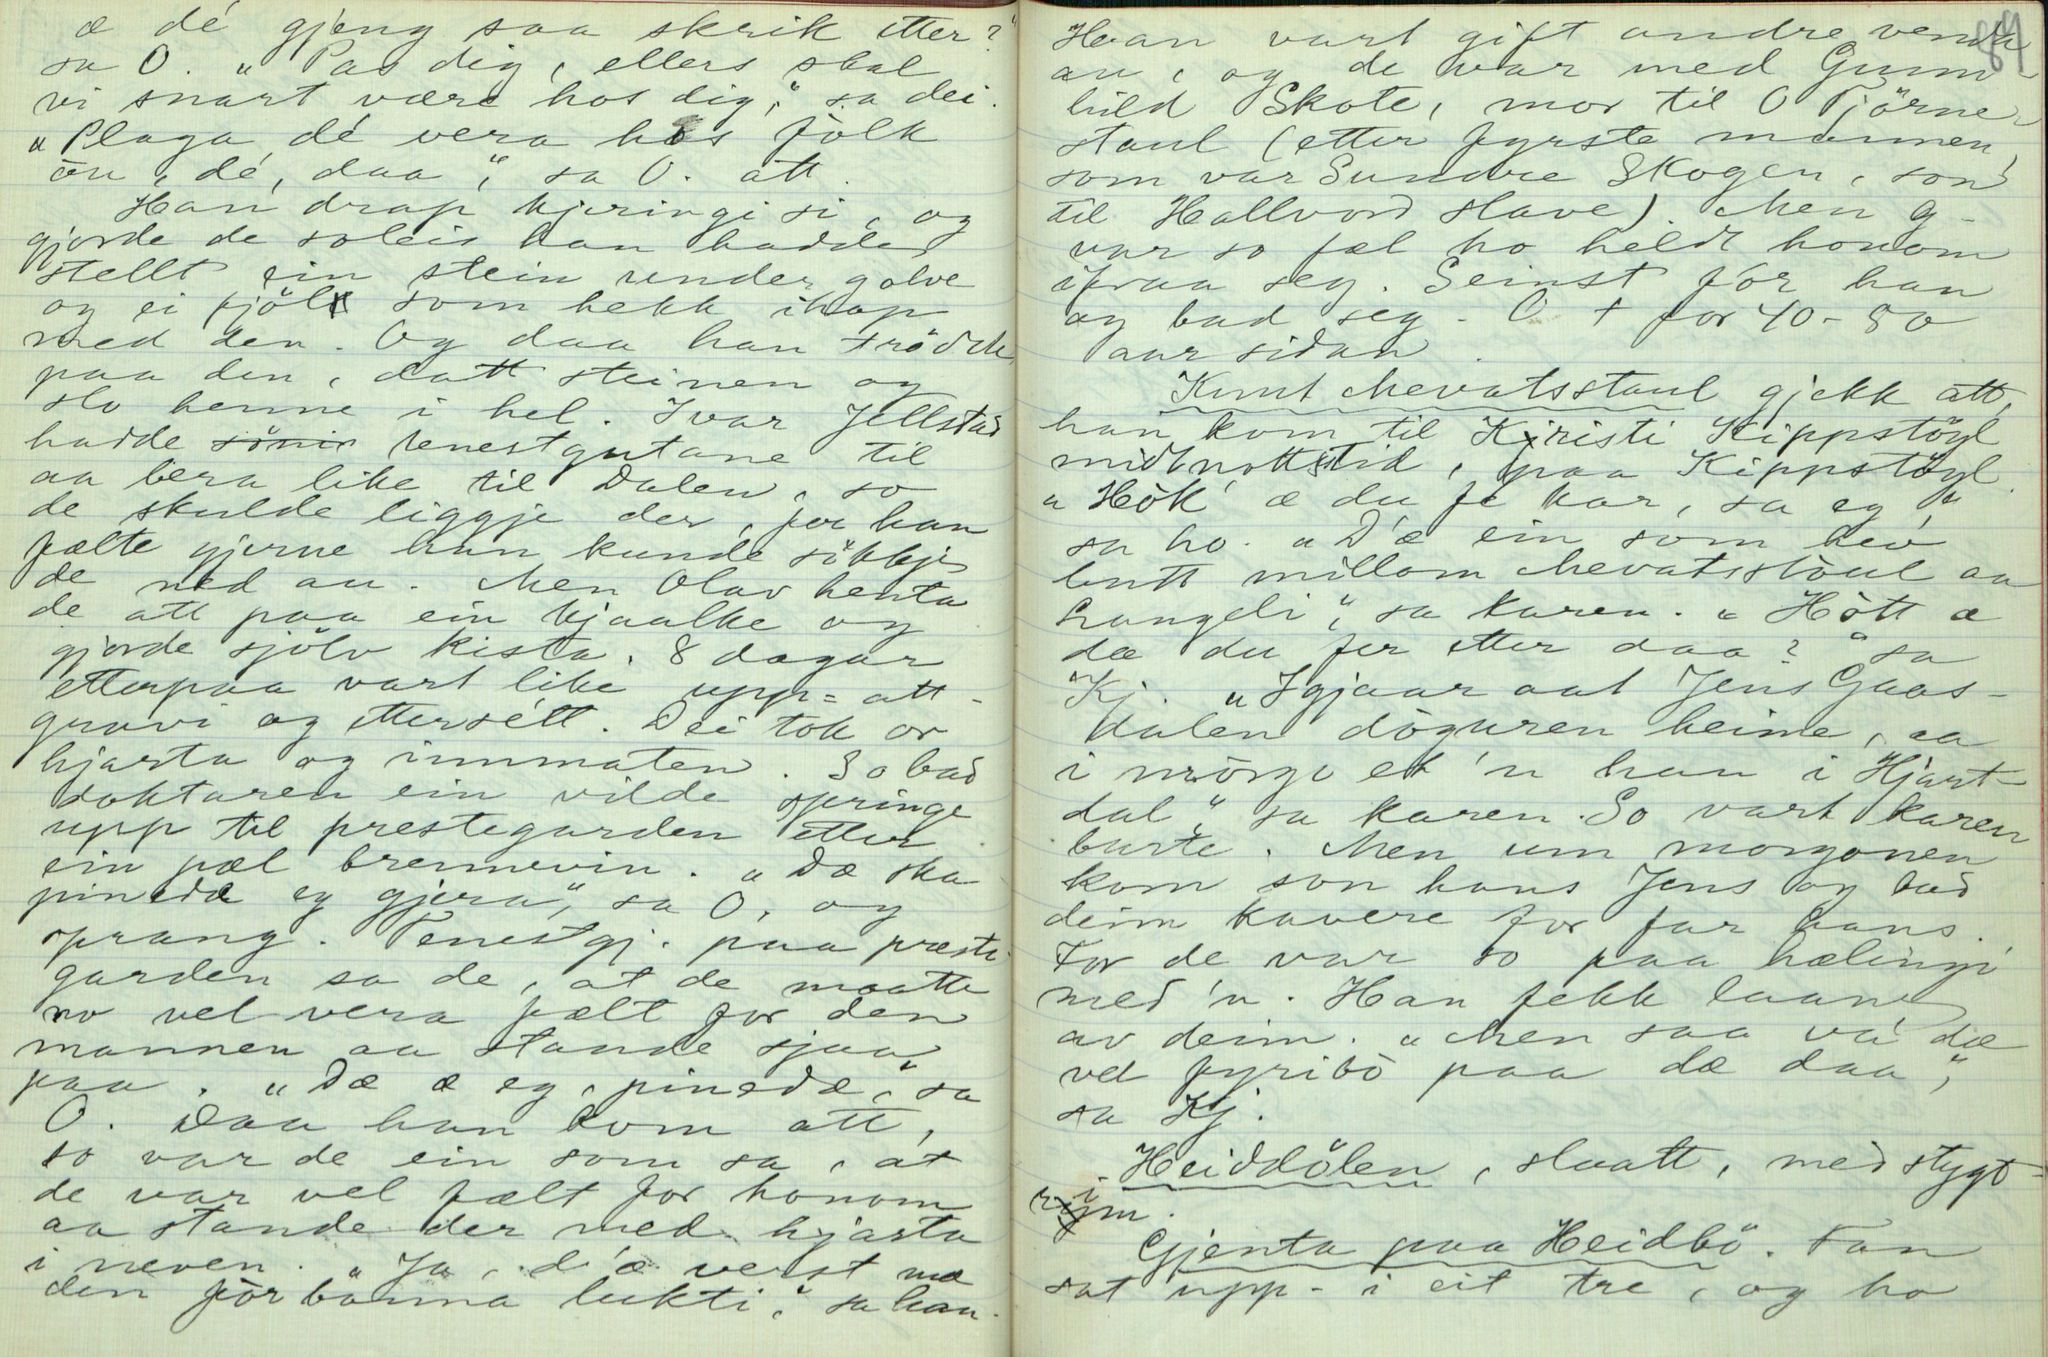 æ dé gjeng saa skrik etter?"
sa O. "Pas dig, ellers skal
vi snart være hos dig," sa dei.
"Plaga dé vera hos fòlk
òn, dé, daa", sa O. att.
Han drap kjeringi si, og
gjorde de soleis han hadde
stellt ein stein under golve
og ei fjöl som hekk ihop
med den. Og daa han trödde
paa den, datt steinen og
slo henne i hel. Ivar Jellstad
hadde tenestgutane til
aa bera like til Dalen, so
de skulde liggje der, for han
fælte gjerne han kunde sökkje
de ned au. Men Olav henta
de att paa ein kjaalke og
gjorde sjölv kista. 8 dagar
etterpaa vart like upp-att-
gravi og ettersétt. Dei tok or
hjarta og innmaten. So bad
doktaren ein vilde springe
upp til prestegarden etter
ein pæl brennevin. "Dæ ska
pinedæ eg gjera", sa O, og
sprang. Tenestgj. paa præste-
garden sa de, at de maatte
no vel vera fælt for den
mannen aa stande sjaa
paa. "Dæ æ eg, pinedæ," sa
O. Daa han kom att,
so var de ein som sa, at
de var vel fælt for honom
aa stande der med hjarta
i neven. "Ja, d'æ verst mæ
den förbanna lukti," sa han.
84
Han vart gift andre venda
au, og de var med Gunn-
hild Skote, mor til O Tjörne-
staul (etter fyrste mannen,
som var Sundre Skogen, son
til Hallvord Slave). Men G-
var so fæl ho heldt honom
ifraa seg. Seinst fór han
og bad seg. O † for 40-50
aar sidan.
Knut Mevatsstaul gjekk att,
han kom til Kristi Kippstöyl
midnottstid, paa Kippstöyl.
"Hòk' æ du fe kar, sa eg,"
sa ho. "D'æ ein som hev
butt millom Mevatsstòul aa
Langeli", sa karen. "Hòtt æ
dæ du fer etter daa?" sa
Kj. "Igjaar aat Jens Gaas-
dalen döguren heime, aa
i mörgo et 'n han i Hjart-
dal", sa karen. So vart karen
burte. Men um morgonen
kom son hans Jens og bad
deim kavere for far hans.
For de var so paa hælingi
med 'n. Han fekk laane
av deim. "Men saa va' dæ
vel fyribò paa dæ daa",
sa Kj.
Heiddölen, slaatt, med stygt-
rim.
Gjenta paa Heidbö. Fan
sat upp-i eit tre, og ho